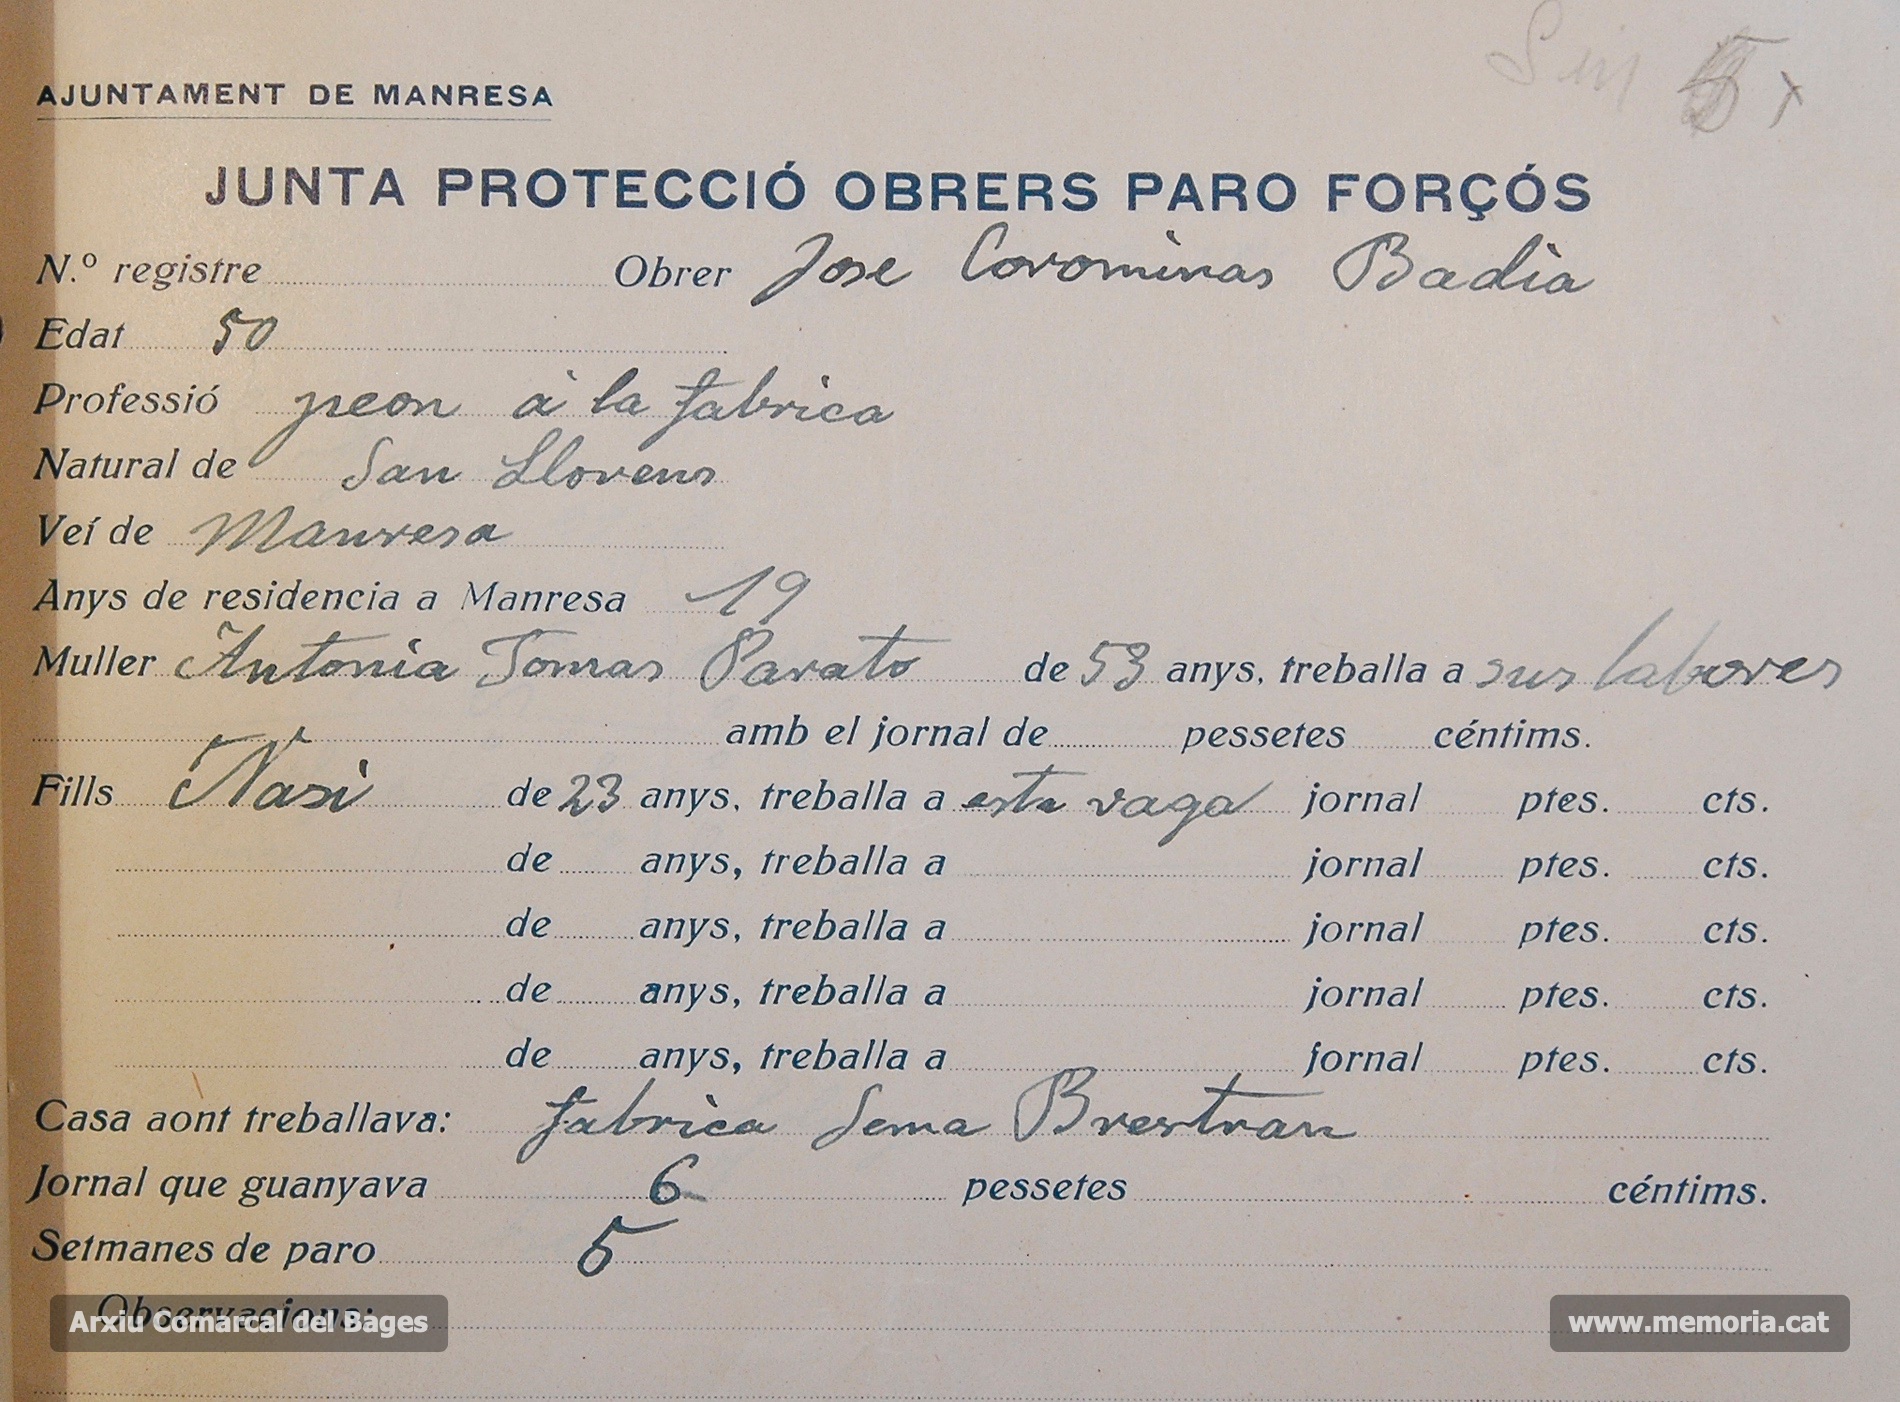 5 x
AJUNTAMENT DE MANRESA
JUNTA PROTECCIÓ OBRERS PARO FORÇÓS
N.º registre Obrer Jose Corominas Badia
Edat 50
Professió peon á la fabrica
Natural de San Llorens
Veí de Manresa
Anys de residencia a Manresa 19
Muller Antonia Tomas Parato de 53 anys, treballa a sus labores
amb el jornal de pessetes céntims.
Fills de 23 anys, treballa a esta vaga jornal ptes. cts.
de anys, treballa a jornal ptes. cts.
de anys, treballa a jornal ptes. cts.
de anys, treballa a jornal ptes. cts.
de anys, treballa a jornal ptes. cts.
Casa aont treballava: fabrica Sema Brestran
Jornal que guanyava 6 pessetes céntims.
Setmanes de paro 5
Observacions:
Arxiu Comarcal del Bages
www.memoria.cat